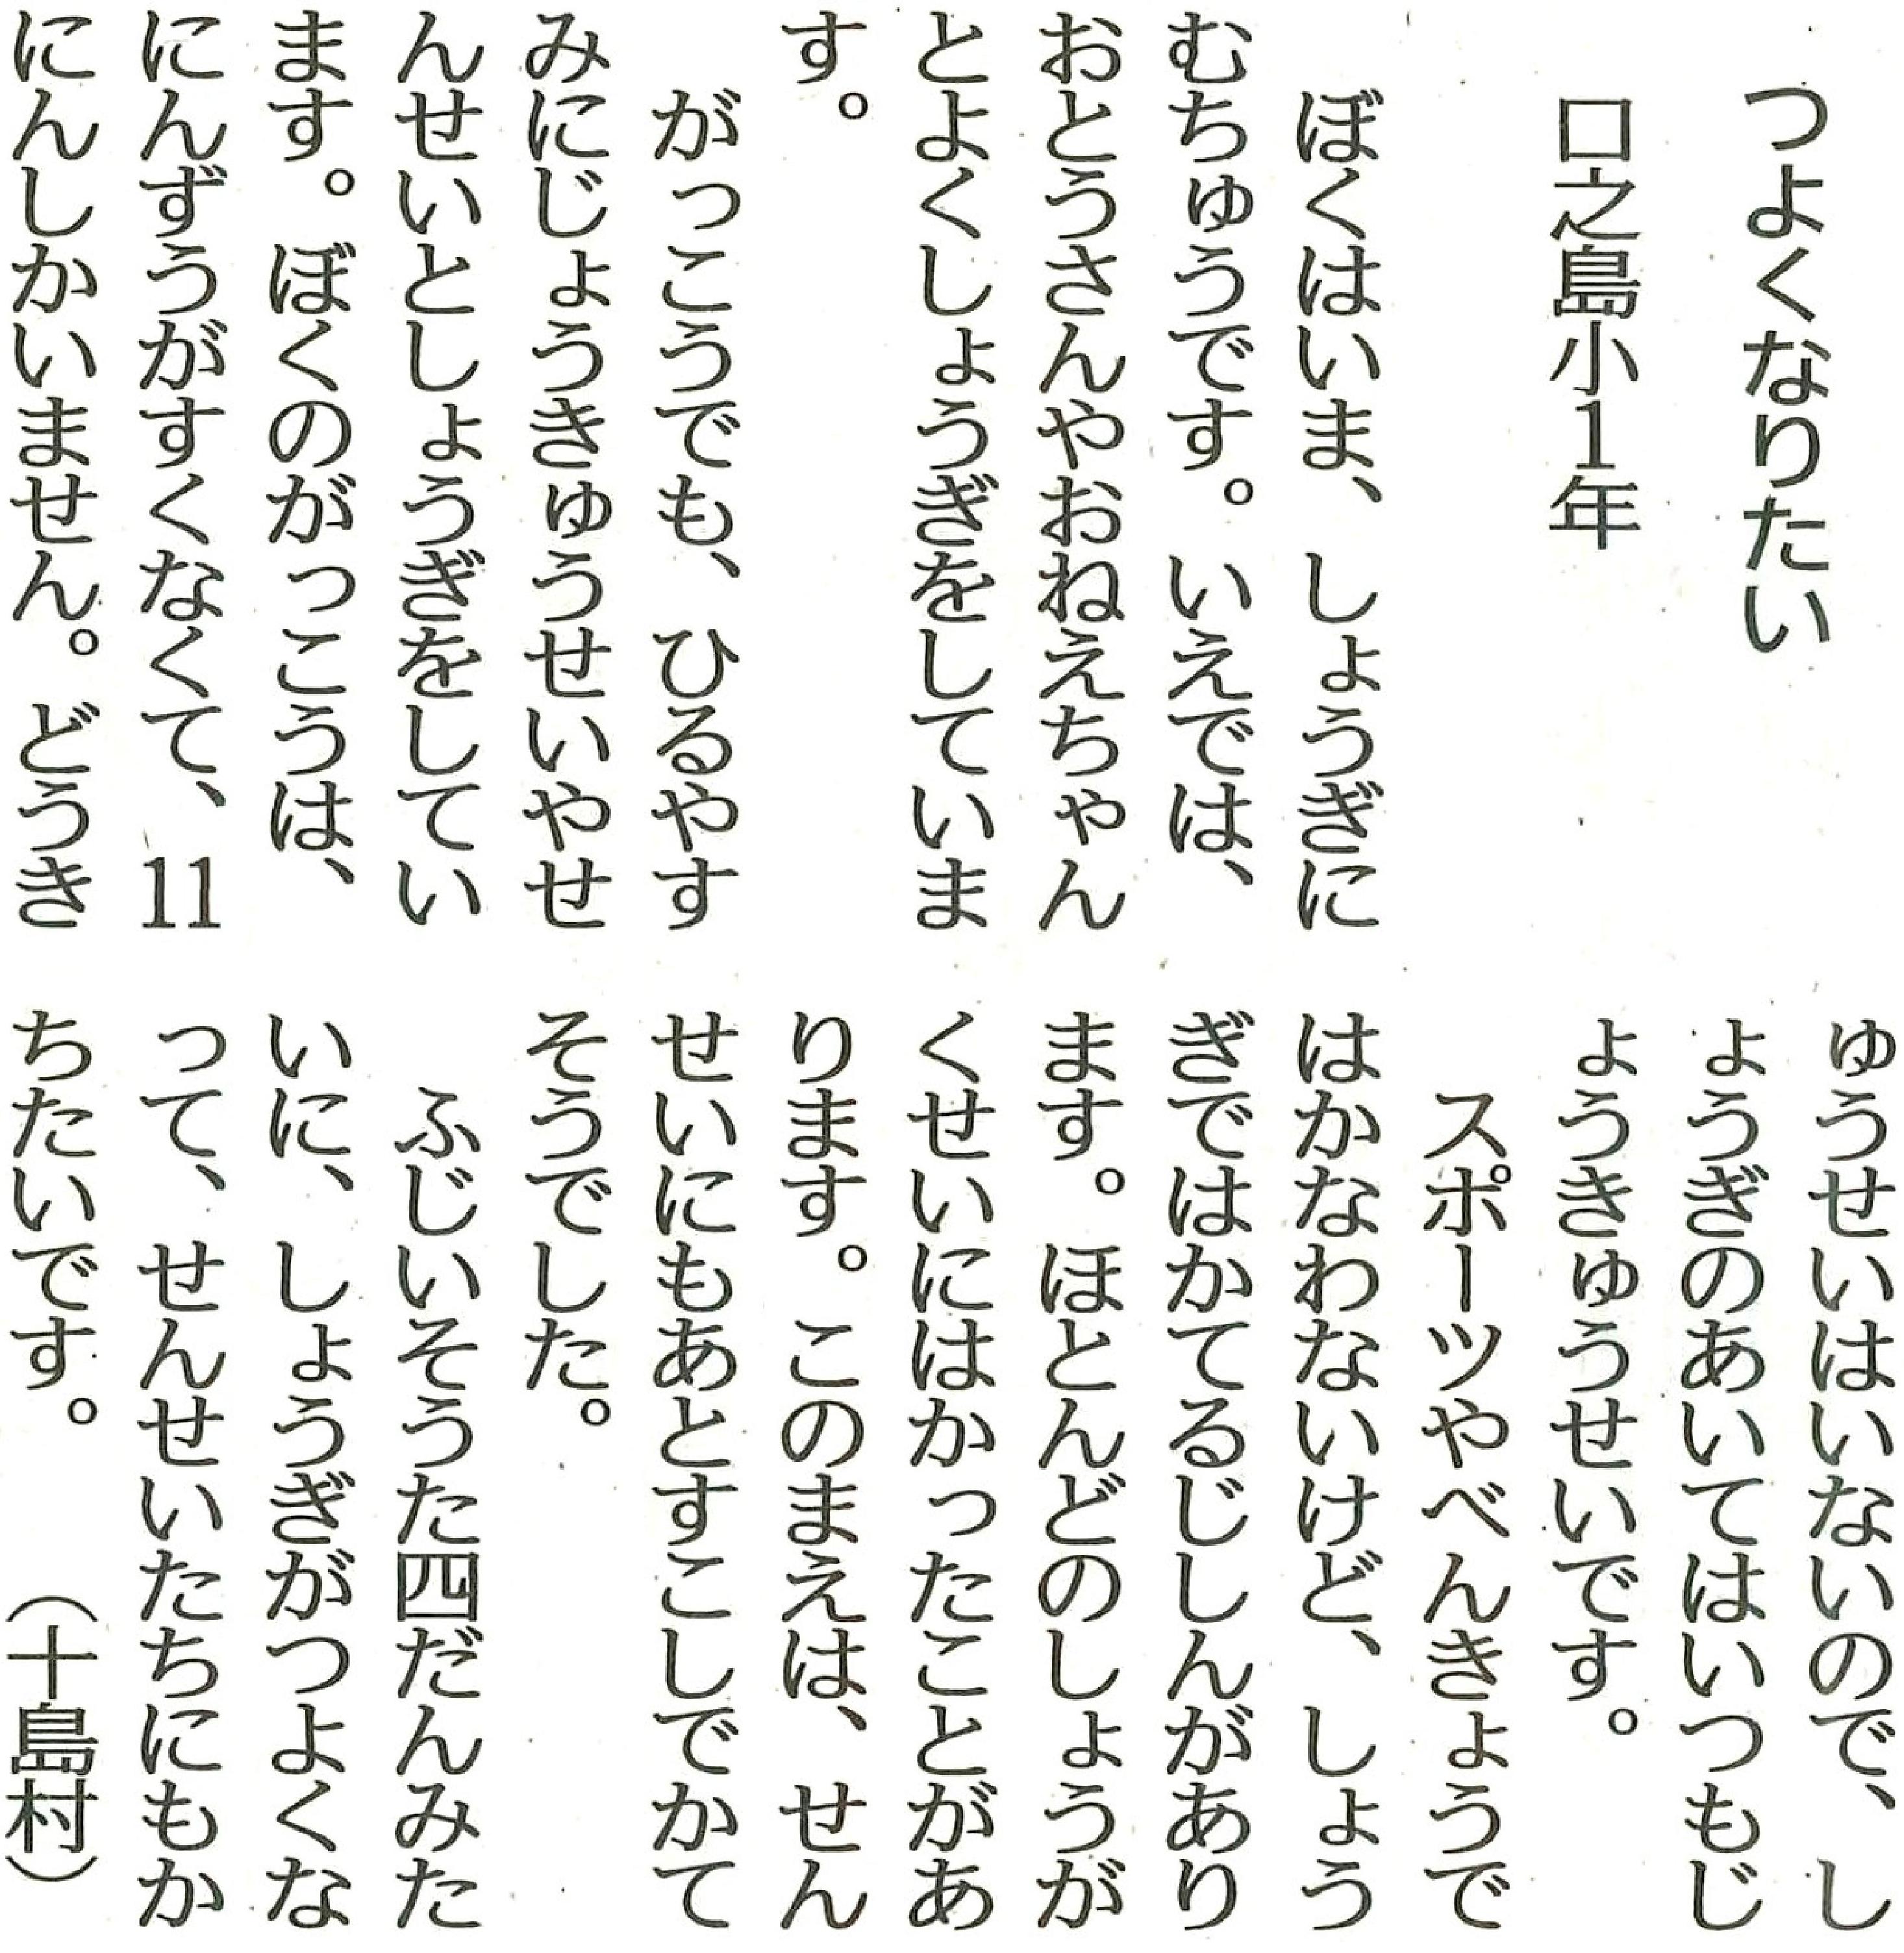 つよくなりたい
口之島小1年
ぼくはいま、しょうぎに
むちゅうです。いえでは、
おとうさんやおねえちゃん
とよくしょうぎをしていま
す。
がっこうでも、ひるやす
みにじょうきゅうせいやせ
んせいとしょうぎをしてい
ます。ぼくのがっこうは、
にんずうがすくなくて、11
にんしかいません。どうき
ゅうせいはいないので、し
ょうぎのあいてはいつもじ
ょうきゅうせいです。
スポーツやべんきょうで
はかなわないけど、しょう
ぎではかてるじしんがあり
ます。ほとんどのしょうが
くせいにはかったことがあ
ります。このまえは、せん
せいにもあとすこしでかて
そうでした。
ふじいそうた四だんみた
いに、しょうぎがつよくな
って、せんせいたちにもか
ちたいです。（十島村）